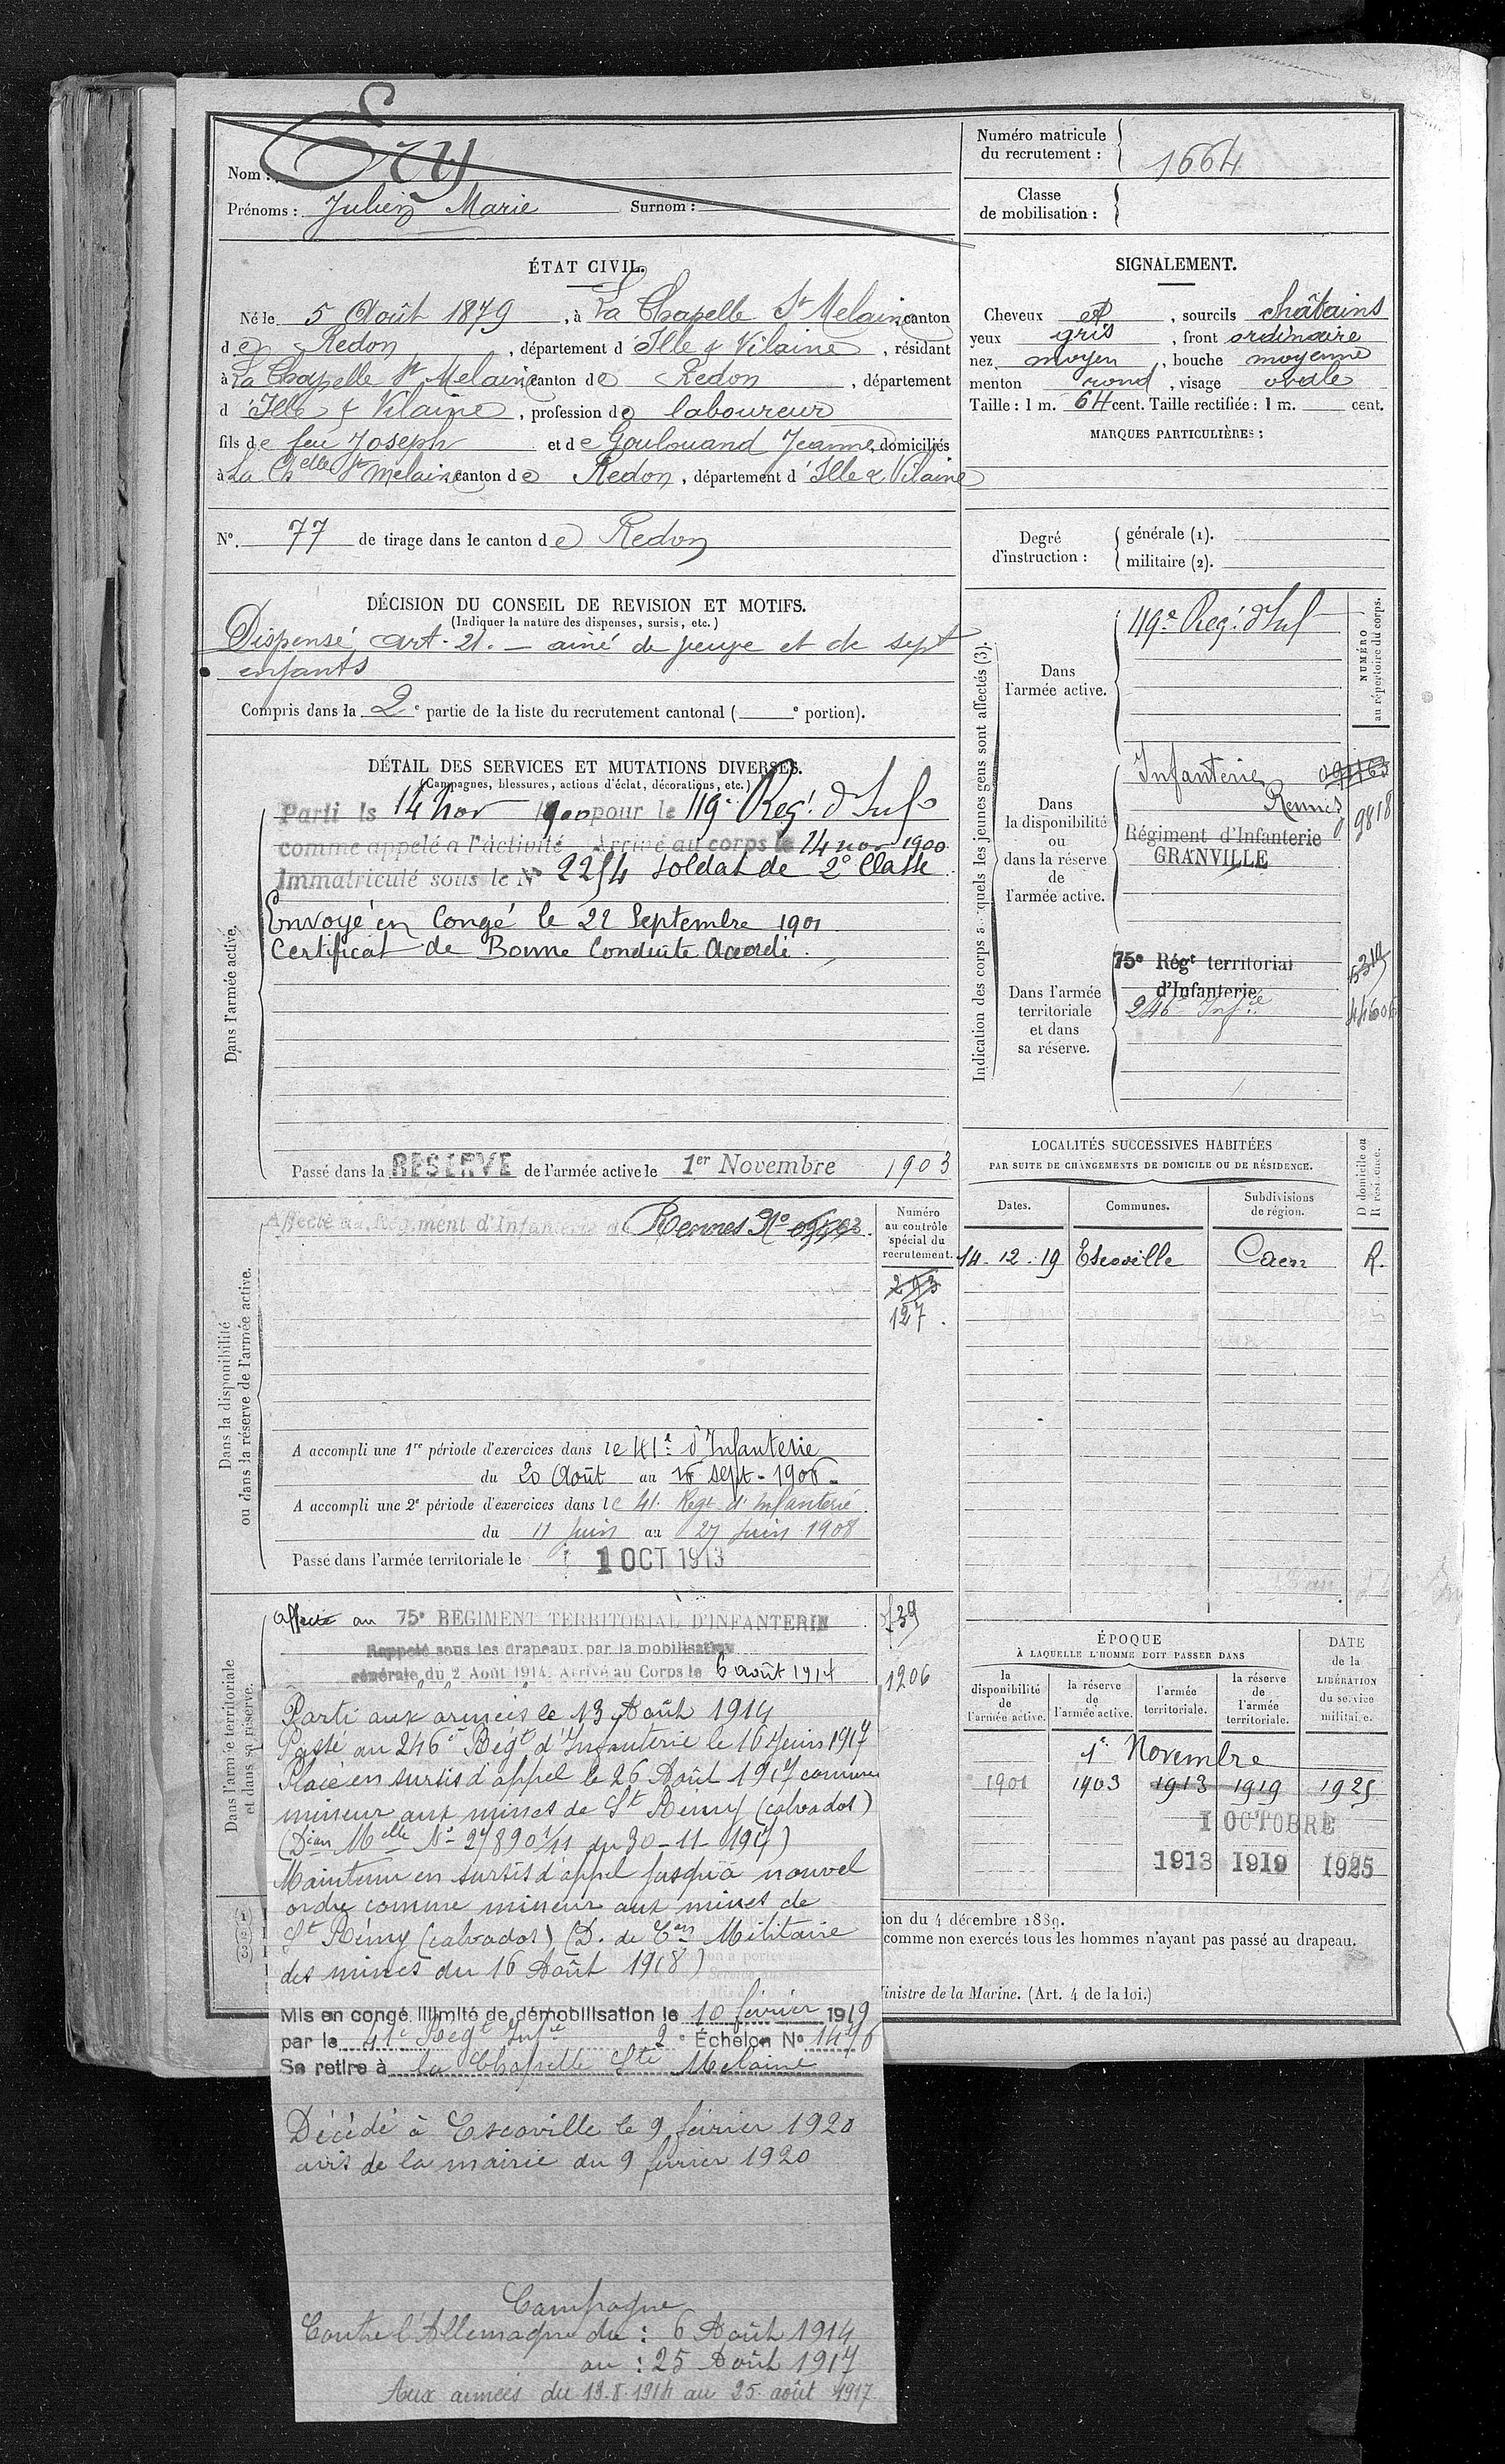 Nom : Ery
Prénoms : Julien Marie Surnom :
Numéro matricule
du recrutement : 1664
Classe
de mobilisation :
ÉTAT CIVIL.
Né le 5 Août 1879, à La Chapelle St Melaine canton
de Redon, département d'Ille & Vilaine, résidant
à La Chapelle St Melaine canton de Redon, département
d'Ille & Vilaine, profession de laboureur
fils de feu Joseph et de Goulouand Jeanne, domiciliés
à La Chelle St Melaine canton de Redon, département d'Ille & Vilaine
N°. 77 de tirage dans le canton de Redon
SIGNALEMENT.
Cheveux et, sourcils châtains
yeux gris, front ordinaire
nez moyen, bouche moyenne
menton rond, visage ovale
Taille : 1 m. 64 cent. Taille rectifiée : 1 m. cent.
MARQUES PARTICULIÈRES :
Degré
d'instruction :
générale (1).
militaire (2).
DÉCISION DU CONSEIL DE REVISION ET MOTIFS.
(Indiquer la nature des dispenses, sursis, etc.)
Dispensé art. 21. — ainé de veuve et de sept
enfants
Compris dans la 2e partie de la liste du recrutement cantonal ( e portion).
DÉTAIL DES SERVICES ET MUTATIONS DIVERSES.
(Campagnes, blessures, actions d'éclat, décorations, etc.)
Dans l'armée active.
Parti le 14 nov 1900 pour le 119e Regt d'Inf
comme appelé à l'activité Arrivé au corps le 14 nov 1900
Immatriculé sous le N° 2254 soldat de 2e Classe
Envoyé en Congé le 22 Septembre 1901
Certificat de Bonne Conduite Accordé.
Passé dans la RÉSERVE de l'armée active le 1er Novembre 1903
Indication des corps auxquels les jeunes gens sont affectés (3).
NUMÉRO
au répertoire du corps.
Dans
l'armée active.
119e Regt d'Inf
Dans
la disponibilité
ou
dans la réserve
de
l'armée active.
Infanterie
Rennes
9818
Régiment d'Infanterie
GRANVILLE
Dans l'armée
territoriale
et dans
sa réserve.
75e Régt territorial
d'Infanterie
246e Infie
LOCALITÉS SUCCESSIVES HABITÉES
PAR SUITE DE CHANGEMENTS DE DOMICILE OU DE RÉSIDENCE.
D domicile ou
R résidence.
Dates. Communes. Subdivisions
de région.
14-12-19 Escoville Caen R.
Dans la disponibilité
ou dans la réserve de l'armée active.
Affecté au Régiment d'Infanterie de Rennes N°
Numéro
au contrôle
spécial du
recrutement.
293
127.
A accompli une 1re période d'exercices dans le 41e d'Infanterie
du 20 Août au 16 sept - 1906
A accompli une 2e période d'exercices dans le 41 Regt d'Infanterie
du 11 juin au 27 juin 1908
Passé dans l'armée territoriale le 1 OCT 1913
Dans l'armée territoriale
et dans sa réserve.
Affecté au 75e RÉGIMENT TERRITORIAL D'INFANTERIE
Rappelé sous les drapeaux par la mobilisation
générale du 2 Août 1914. Arrivé au Corps le 6 août 1914
1206
Parti aux armées le 13 Août 1914
Passé au 246e Régt d'Infanterie le 16 Juin 1917
Placé en sursis d'appel le 26 Août 1917 comme
mineur aux mines de St Rémy (calvados)
(Dion Melle No 27890 1/11 du 30-11-1917)
Maintenu en sursis d'appel jusqu'à nouvel
ordre comme mineur aux mines de
St Rémy (calvados) (D. de Militaire
des mines du 16 Août 1918)
Mis en congé illimité de démobilisation le 10 février 1919
par le 41e Regt Infie 2e Échelon N° 1476
Se retire à la Chapelle Ste Melaine
Décédé à Escoville le 9 février 1920
avis de la mairie du 9 février 1920
Campagne
Contre l'Allemagne du : 6 Août 1914
au : 25 Août 1917
Aux armées du 13.8.1914 au 25 août 1917
ÉPOQUE
À LAQUELLE L'HOMME DOIT PASSER DANS
la
disponibilité
de
l'armée active.
la réserve
de
l'armée active.
l'armée
territoriale.
la réserve
de
l'armée
territoriale.
DATE
de la
LIBÉRATION
du service
militaire.
1er Novembre
1901 1903 1913 1919 1925
1 OCTOBRE
1913 1919 1925
ion du 4 décembre 1889.
comme non exercés tous les hommes n'ayant pas passé au drapeau.
inistre de la Marine. (Art. 4 de la loi.)